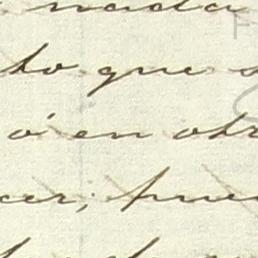 nada
to que s
ó en otr
cer; pue